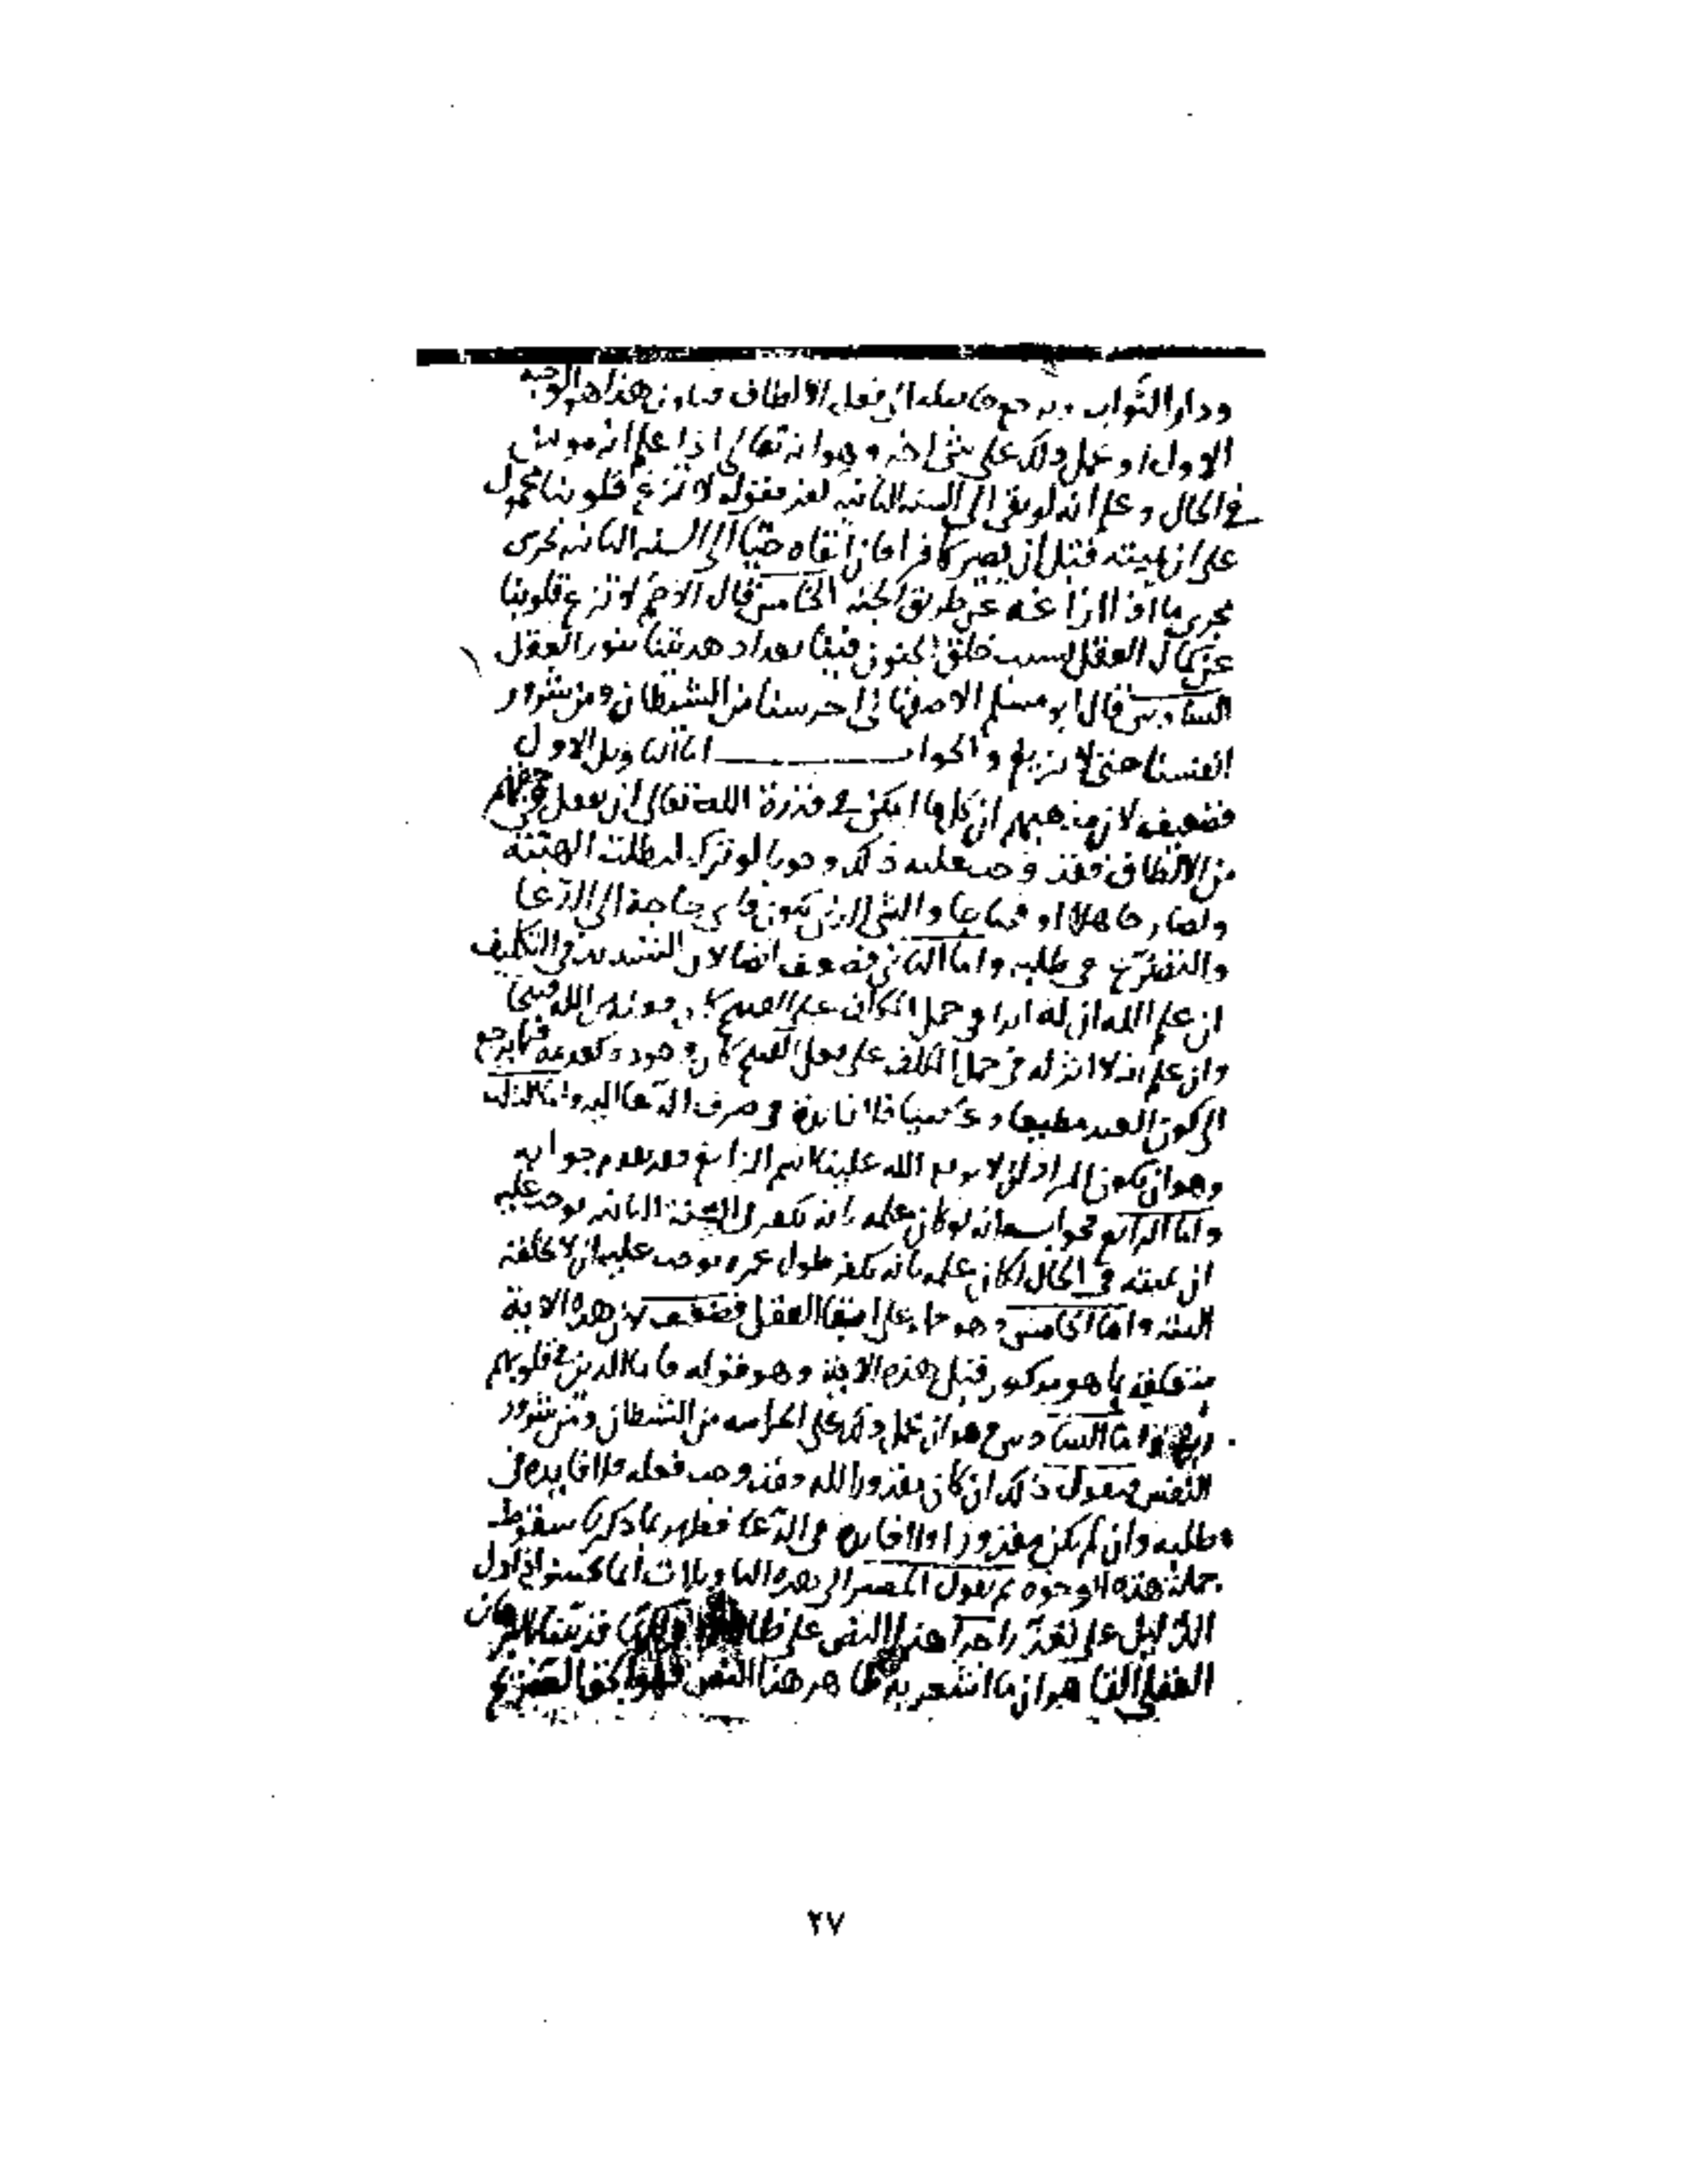 ودار الثواب ويرجع حاصله الى فعل الالطاف فيكون هذا هو الوجه
الاول او يحمل ذلك على شى اخر وهو انه تعالى اذا علم انه مومن
في الحال وعلم انه لو بقى الى السنه الثانيه لكفر فقوله لا تزغ قلوبنا محمول
على ان يميته قبل ان يصير كافرا فان ابقاه حيا الى السنه الثانيه يجرى
مجرى ما اذا ازاغه عن طريق الجنه الخامس قال الاصم لا تزغ قلوبنا
عن كمال العقل بسبب خلق الجنون فينا بعد اذ هديتنا بنور العقل
السادس قال ابو مسلم الاصفهانى احرسنا من الشيطان ومن شرور
انفسنا حتى لا نزيغ والجواب اما التاويل الاول
فضعيف لان مذهبهم ان كل ما امكن في قدرة الله تعالى ان يفعل في حقهم
من الالطاف فقد وجب عليه ذلك وجوبا لو تركه لبطلت الهيته
ولصار جاهلا او محتاجا والشى الذى يكون فاى حاجة الى الدعا
والتضرع في طلبه واما الثانى فضعيف ايضا لان التشديد في التكليف
ان علم الله ان له اثرا في حمل المكلف على القبيح كان من الله قبيحا
وان علم انه لا اثر له في حمل المكلف على فعل القبيح كان وجوده وكعدمه فيما يرجع
الى كون العبد مطيعا وعاصيا فلا فايدة في صرف الدعا اليه واما الثالث
وهو ان يكون المراد ان لا الله علينا باسم الزايغ فقد تقدم جوابه
واما الرابع فجوابه انه لو كان علمه بانه يكفر في السنة الثانيه يوجب عليه
ان يميته في الحال لكان علمه بانه يكفر طول عمره يوجب عليه ان لا يخلقه
البته واما الخامس وهو حمله على ابقا العقل فضعيف لان هذه الاية
متعلقة بما هو مذكور قبل هذه الاية وهو قوله فاما الذين في قلوبهم
زيغ واما السادس وهو ان يحمل ذلك على الحراسه من الشيطان ومن شرور
النفس فنقول ذلك ان كان مقدورا لله فقد وجب فعله فلا فايده في
طلبه وان لم يكن مقدورا فلا فايده في الدعا فظهر بما ذكرنا سقوط
جملة هذه الوجوه ثم نقول المصير الى هذه التاويلات انما يحسن اذا دل
الدليل على تعذر اجرا هذا النص على قد بينا
العقلى القاهر ان ما اشعر به ظاهر هذا النص فهو الحق الصريح
٢٧